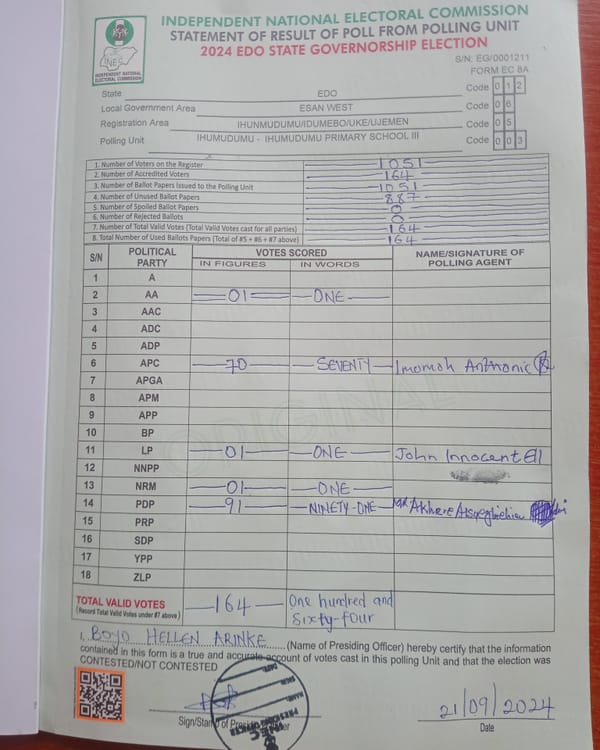 INDEPENDENT NATIONAL ELECTORAL COMMISSION
STATEMENT OF RESULT OF POLL FROM POLLING UNIT
2024 EDO STATE GOVERNORSHIP ELECTION
INEC
INDEPENDENT NATIONAL
ELECTORAL COMMISSION
S/N: EG/0001211
FORM EC 8A
State EDO Code 0 1 2
Local Government Area ESAN WEST Code 0 6
Registration Area IHUNMUDUMU/IDUMEBO/UKE/UJEMEN Code 0 5
Polling Unit IHUMUDUMU - IHUMUDUMU PRIMARY SCHOOL III Code 0 0 3
1. Number of Voters on the Register 1051
2. Number of Accredited Voters 164
3. Number of Ballot Papers Issued to the Polling Unit 1051
4. Number of Unused Ballot Papers 887
5. Number of Spoiled Ballot Papers 0
6. Number of Rejected Ballots 0
7. Number of Total Valid Votes (Total Valid Votes cast for all parties) 164
8. Total Number of Used Ballots Papers (Total of #5 + #6 + #7 above) 164
S/N POLITICAL PARTY VOTES SCORED NAME/SIGNATURE OF POLLING AGENT
IN FIGURES IN WORDS
1 A
2 AA 01 ONE
3 AAC
4 ADC
5 ADP
6 APC 70 SEVENTY Imomoh
7 APGA
8 APM
9 APP
10 BP
11 LP 01 ONE John Innocent
12 NNPP
13 NRM 01 ONE
14 PDP 91 NINETY-ONE Mr Akhere
15 PRP
16 SDP
17 YPP
18 ZLP
ORIGINAL
TOTAL VALID VOTES 164 One hundred and
(Record Total Valid Votes under #7 above) Sixty-four
I, BOYO HELLEN ARINKE (Name of Presiding Officer) hereby certify that the information
contained in this form is a true and accurate account of votes cast in this polling Unit and that the election was
CONTESTED/NOT CONTESTED
Sign/Stamp of Presiding Officer
21/09/2024
Date
PRESIDING OFFICER
INEC